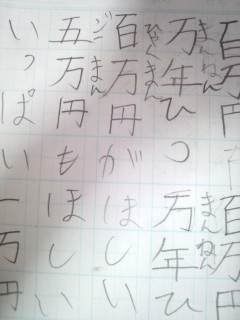 百万円 百万円
まんねん まんねん
万年ひつ 万年ひ
ひゃくまん
百万円がほしい
ご まん
五万円もほしい
いっぱい一万円